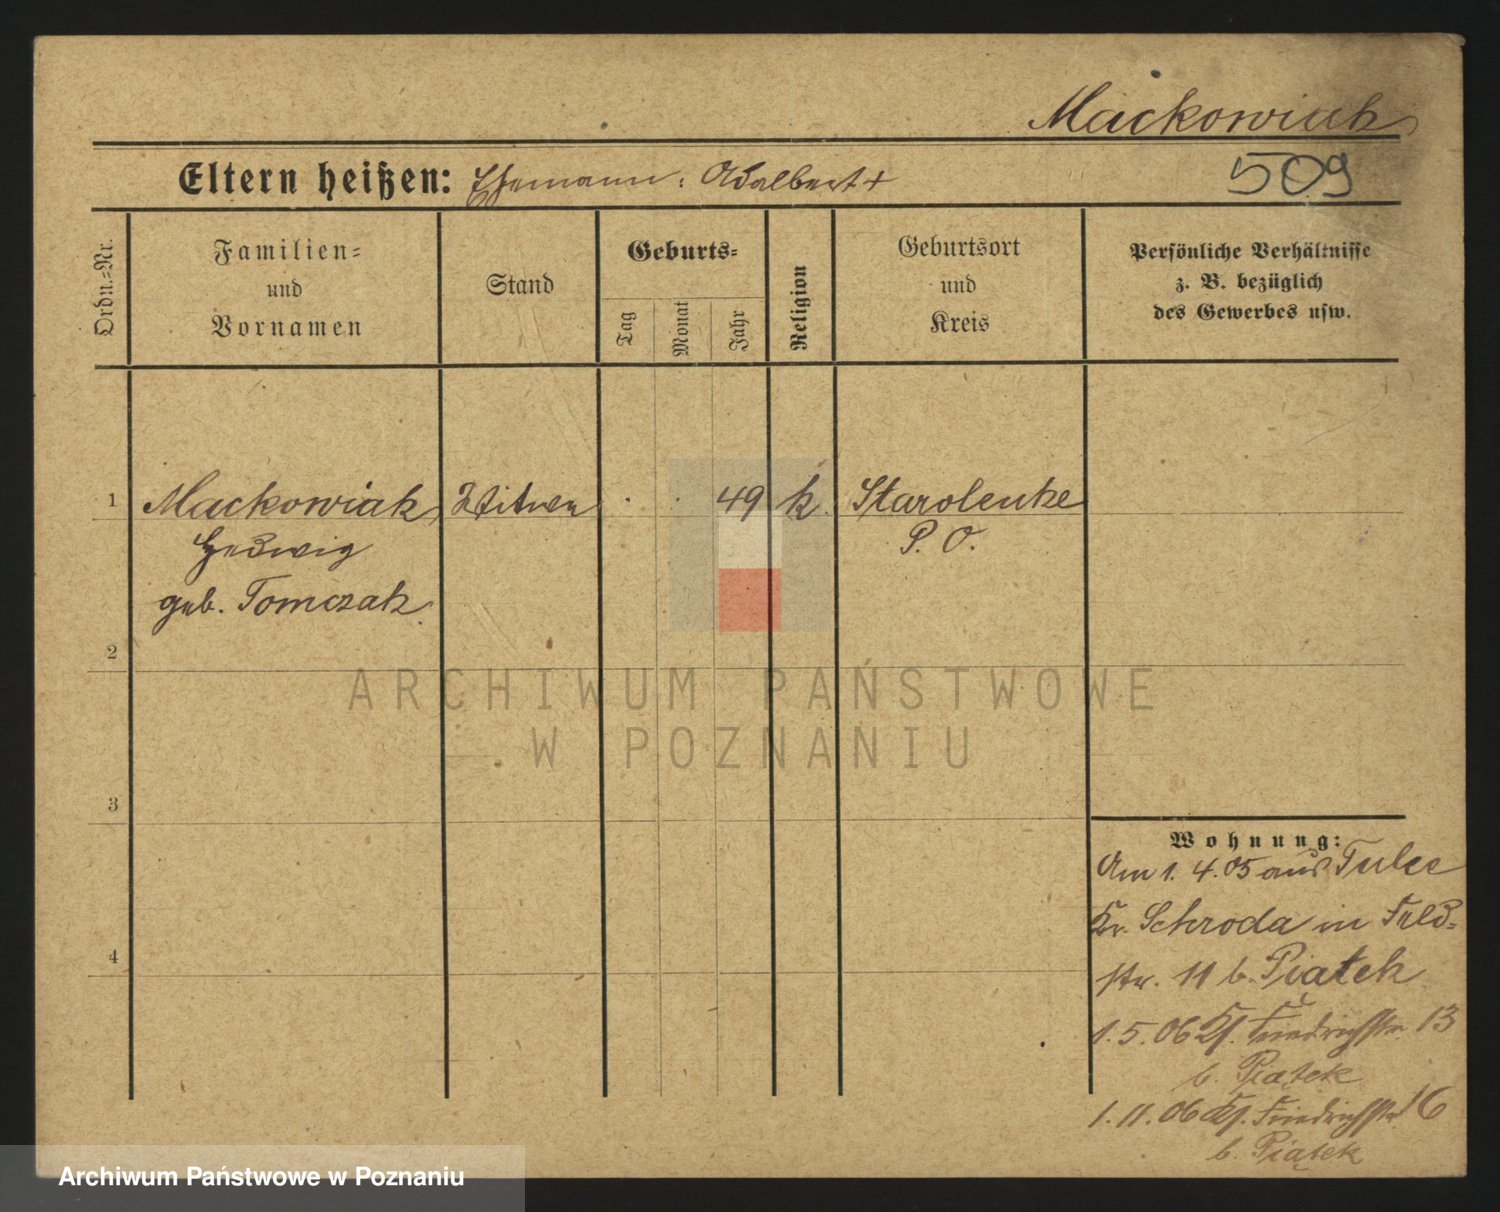 Mackowiak
Eltern heißen: Ehemann: Adalbert +
509
Ordn.-Nr.
Familien-
und
Vornamen
Stand
Geburts-
Tag
Monat
Jahr
Religion
Geburtsort
und
Kreis
Persönliche Verhältnisse
z. B. bezüglich
des Gewerbes usw.
1 Mackowiak Witwe . . 49 k. Starolenke
Hedwig P. O.
geb. Tomczak.
2
ARCHIWUM PAŃSTWOWE
W POZNANIU
3
4
Wohnung:
Am 1. 4. 05 aus Tulce
Kr. Schroda in Feld-
str. 11 b. Piatek
1. 5. 06 Kl. Friedrichstr. 13
b. Piątek
1. 11. 06 Kl. Friedrichstr. 16
b. Piątek
Archiwum Państwowe w Poznaniu